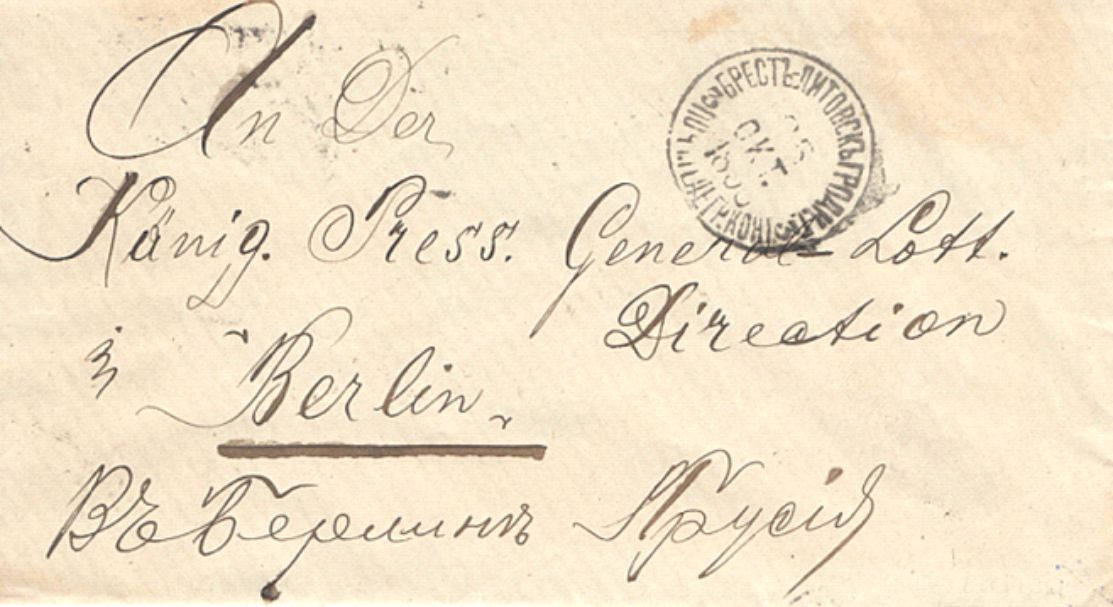 An Der
König. Press. General-Lott.
Direction
in Berlin
Въ Берлинъ Прусія
БРЕСТЪ-ЛИТОВСКЪ ГРОДН.
ОКТ